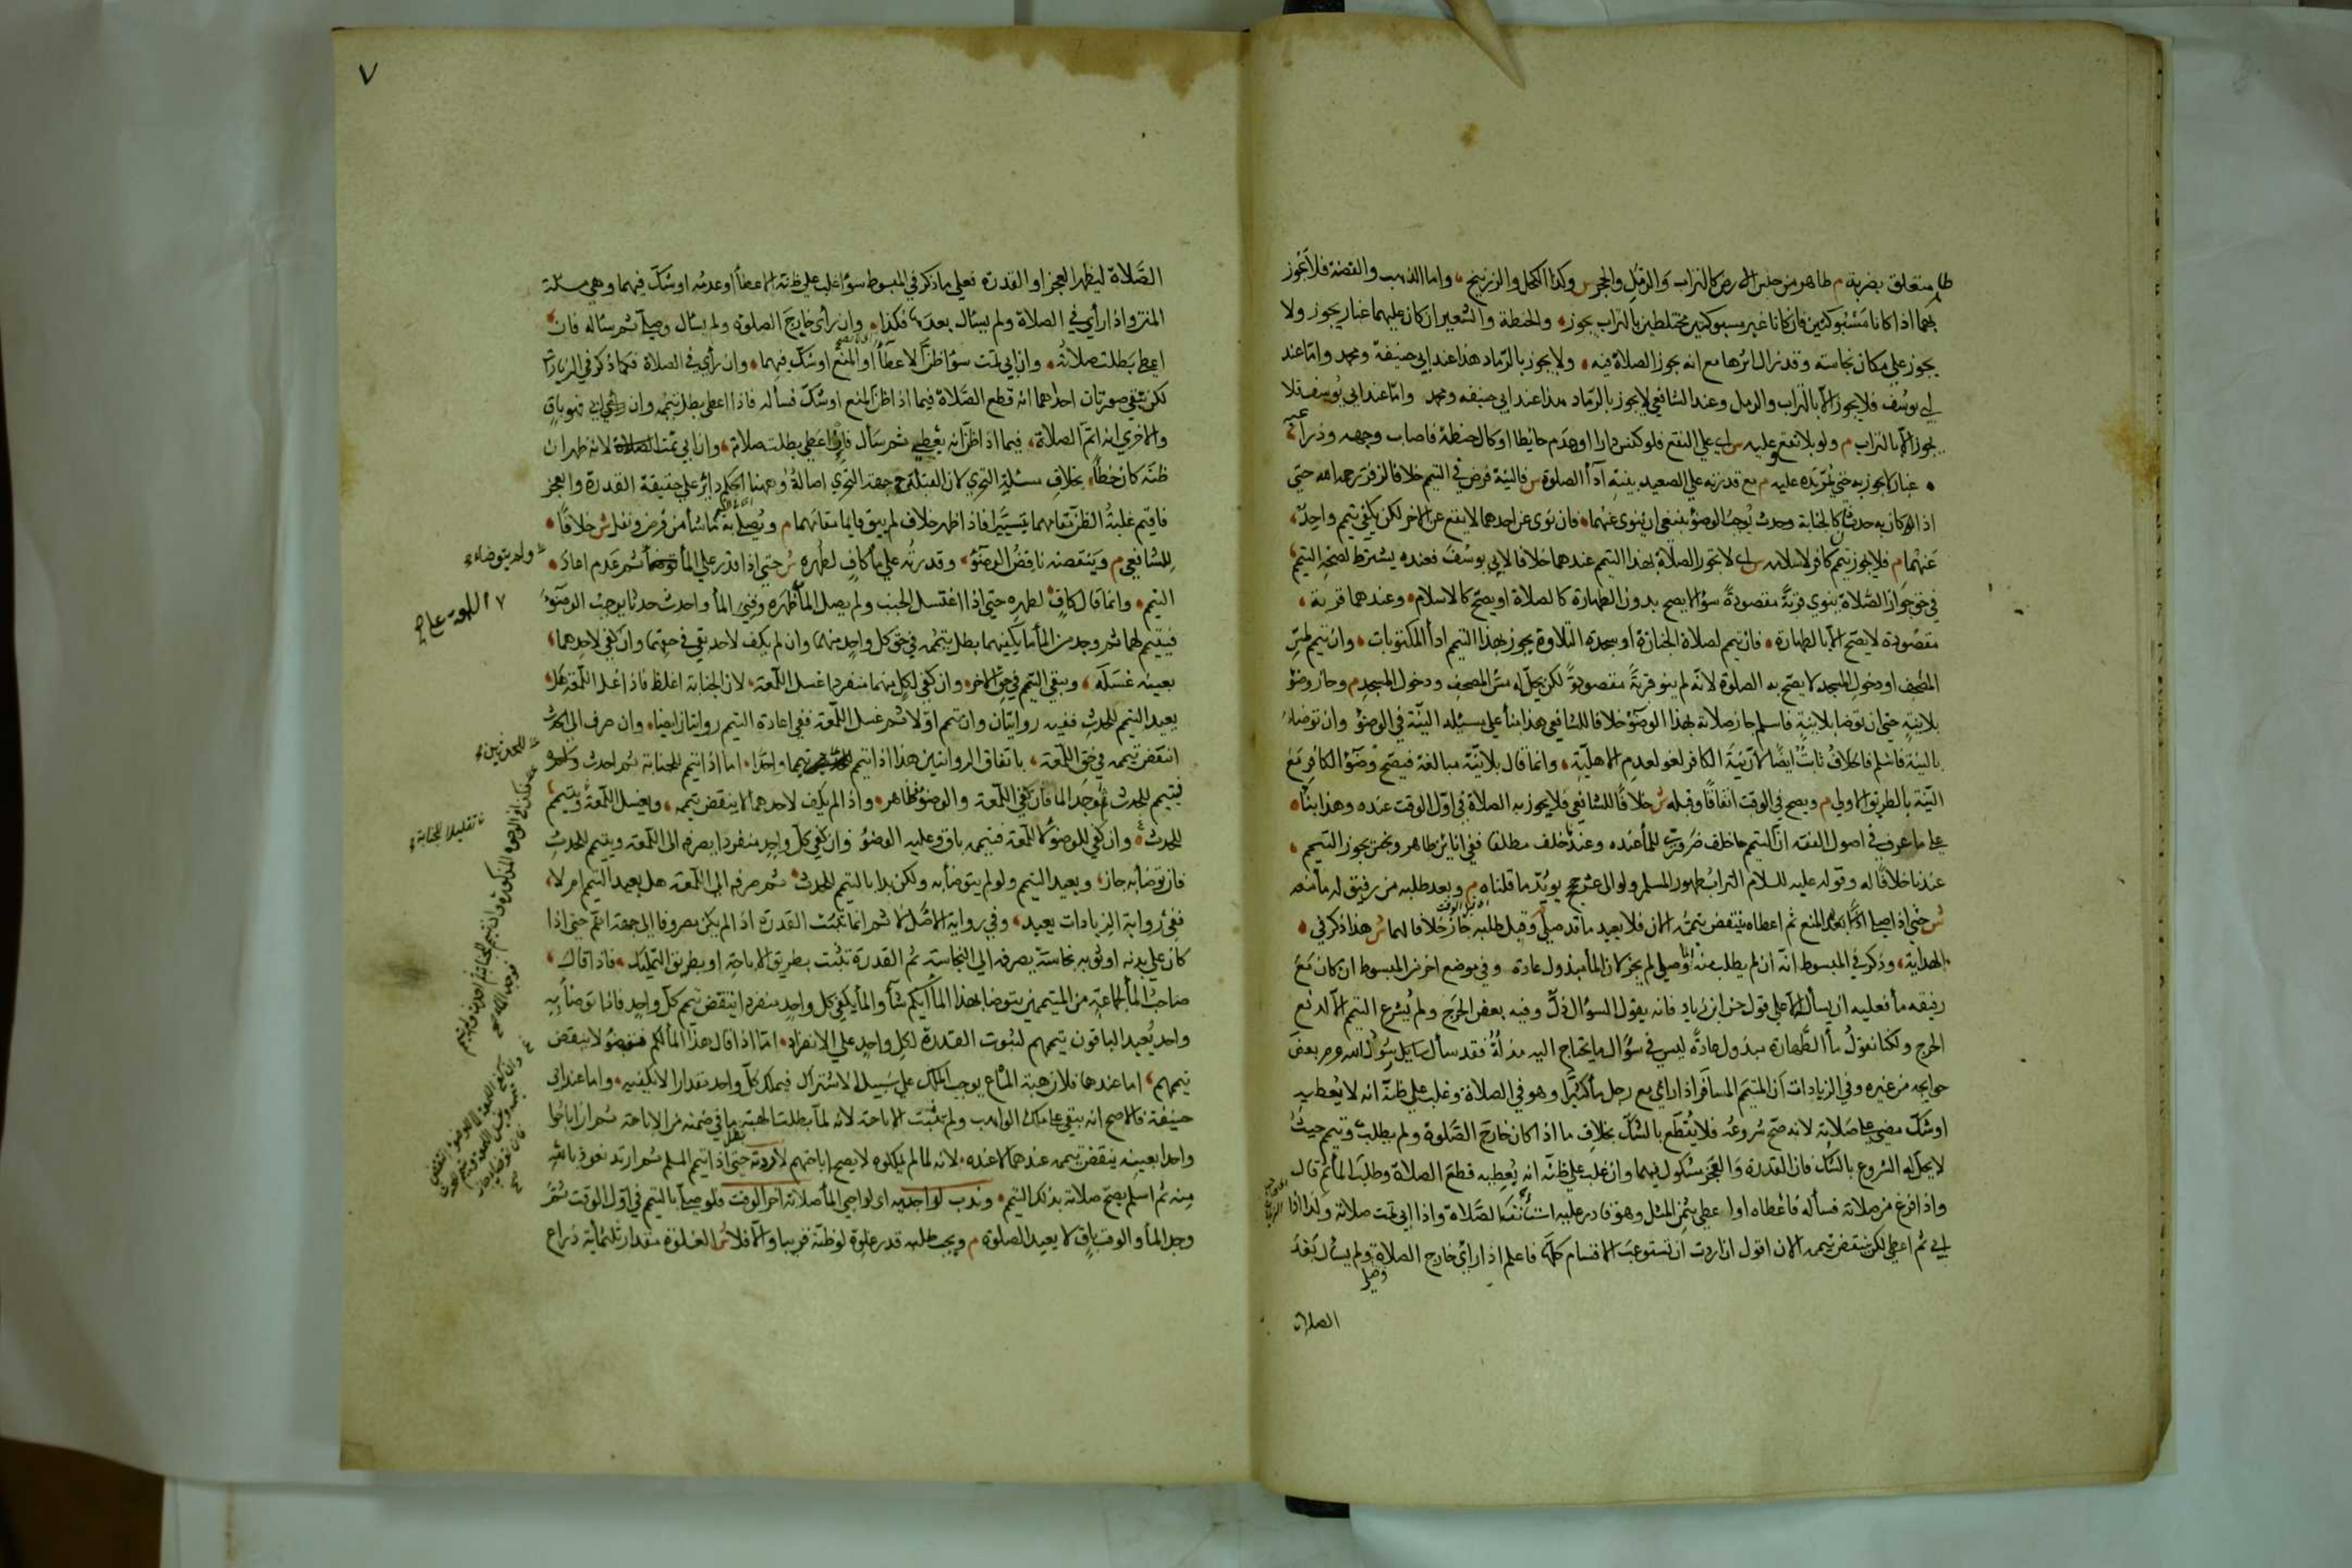 طاهر متعلق بضربة م طاهر من جنس الارض كالتراب والرمل والحجر س وكذا الكحل والزرنيخ واما الذهب والفضة فلا يجوز
بهما اذا كانا مسبوكين فان كانا غير مسبوكين مختلطين بالتراب يجوز والحنطة والشعير ان كان عليهما غبار يجوز ولا
يجوز علي مكان نجاسة وقد زال اثرها مع انه يجوز الصلاة فيه ولا يجوز بالرماد هذا عند ابي حنيفة ومحمد واما عند
ابي يوسف فلا يجوز الا بالتراب والرمل وعند الشافعي لا يجوز بالرماد هذا عند ابي حنيفه ومحمد واما عند ابي يوسف فلا
يجوز الا بالتراب م ولو بلا نقع وعليه س اي علي النقع فلو كنس دارا او هدم حايطا او كال حنطة فاصاب وجهه وذراعيه
غبار لا يجوز به حتي يمر يده عليه م مع قدرته علي الصعيد بنية اداء الصلوة س فالنية فرض في التيمم خلافا لزفر رحمه الله حتي
اذا كان به حدثان كالجنابة وحدث يوجب الوضوء ينبغي ان ينوي عنهما فان نوي عن احدهما لا يقع عن الاخر لكن يكفي تيمم واحد
عنهما م فلا يجوز تيمم كافر لاسلامه س اي لا تجوز الصلاة بهذا التيمم عندهما خلافا لابي يوسف فعنده يشترط لصحة التيمم
في حق جواز الصلاة ينوي قربة مقصودة سواء لا يصح بدون الطهارة كالصلاة او يصح كالاسلام وعندهما قربة
مقصودة لا يصح الا بالطهارة فان تيمم لصلاة الجنازة او سجدة التلاوة يجوز بهذا التيمم اداء المكتوبات وان تيمم لمس
المصحف او دخول المسجد لا يصح به الصلوة لانه لم ينو قربة مقصودة لكن يحل له مس المصحف ودخول المسجد م وجاز وضوء
بلا نية حتي ان توضا بلا نية فاسلم جاز صلاته بهذا الوضوء خلافا للشافعي هذا بناء علي مسئلة النية في الوضوء وان توضا
بالنية فاسلم فالخلاف ثابت ايضا لان نية الكافر لغو لعدم الاهلية وانما قال بلا نية مبالغة فيصح وضوء الكافر مع
النية بالطريق الاولي م ويصح في الوقت اتفاقا وقبله ش خلافا للشافعي فلا يجوز به الصلاة في اول الوقت عنده وهذا بناء
علي ما عرف في اصول الفقه ان التيمم خلف ضروري للماء عنده وعندنا خلف مطلقا ففي انائين طاهر ونجس يجوز التيمم
عندنا خلافا له وقوله عليه السلام التراب طهور المسلم ولو الي عشر حجج يويد ما قلناه م وبعد طلبه من رفيق له ماء منعه
ش حتي اذا صلي بعد المنع ثم اعطاه ينتقض تيممه الان فلا يعيد ما قد صلي وقبل طلبه جاز خلافا لهما ش هذا ذكر في
الهداية وذكر في المبسوط انه ان لم يطلب منه وصلي لم يجز لان الماء مبذول عادة وفي موضع اخر من المبسوط ان كان مع
رفيقه ماء فعليه ان يسال الا علي قول حسن ابن زياد فانه يقول السؤال ذل وفيه بعض الحرج ولم يشرع التيمم الا لدفع
الحرج ولكنا نقول ماء الطهارة مبذول عادة ليس في سؤال ما يحتاج اليه مذلة فقد سال رسول الله بعض
حوايجه من غيره وفي الزيادات ان المتيمم المسافر اذا راي مع رجل ماء كثيرا وهو في الصلاة وغلب علي ظنه انه لا يعطيه
او شك مضي علي صلاته لانه صح شروعه فلا يقطع بالشك بخلاف ما اذا كان خارج الصلوة ولم يطلب وتيمم حيث
لا يحل له الشروع بالشك فان القدرة والعجز مشكوك فيهما وان غلب علي ظنه انه يعطيه قطع الصلاة وطلب الماء ثم قال
واذا فرغ من صلاته فساله فاعطاه او اعطي بثمن المثل وهو قادر عليه استانف الصلاة واذا ابي تمت صلاته وكذا اذا
ابي ثم اعطي لكن ينتقض تيممه الان اقول ان اردت ان تستوعب الاقسام كلها فاعلم اذا راي خارج الصلاة ولم يسال بعد
الصلاة
٧
الصلاة ليظهر العجز او القدرة فعلي ما ذكر في المبسوط سواء غلب علي ظنه الاعطاء او عدمه او شك فيهما وهي مسئلة
المتن واذا راي في الصلاة ولم يسال بعدها فكذا وان راي خارج الصلوة ولم يسال وصلي ثم ساله فان
اعطي بطلت صلاته وان ابي تمت سواء ظن الاعطاء او المنع او شك فيهما وان راي في الصلاة فكما ذكر في الزيادات
لكن بقي صورتان احدهما انه قطع الصلاة فيما اذا ظن المنع او شك فساله فاذا اعطي بطل تيممه وان ابي فهو باق
والاخري انه اتم الصلاة فيما اذا ظن انه يعطي ثم سال فان اعطي بطلت صلاته وان ابي تمت لانه ظهر ان
ظنه كان خطأ بخلاف مسئلة التحري لان القبلة جهة التحري اصالة وههنا الحكم دائر علي حقيقة القدرة والعجز
فاقيم غلبة الظن مقامهما تيسيرا فاذا ظهر خلافه لم يبق قايما مقامهما م ويصلي به ما شاء من فرض ونفل ش خلافا
للشافعي م وينقضه ناقض الوضوء وقدرته علي ماء كاف لطهره ش حتي اذا قدر علي الماء ثم عدم اعاد
التيمم وانما قال كاف لطهره حتي اذا اغتسل الجنب ولم يصل الماء ظهره وفني الماء واحدث حدثا يوجب الوضوء
فتيمم لهما ثم وجد من الماء ما يكفيهما بطل تيممه في حق كل واحد منهما وان لم يكف لاحد بقي في حقهما وان كفي لاحدهما
بعينه غسله ويبقي التيمم في حق الاخر وان كفي لكل منهما منفردا غسل اللمعة لان الجنابة اغلظ فاذا غسل اللمعة هل
يعيد التيمم للحدث ففيه روايتان وان تيمم اولا ثم غسل اللمعة ففي اعادة التيمم روايتان ايضا وان صرف الي الحدث
انتقض تيممه في حق اللمعة باتفاق الروايتين هذا اذا تيمم تيمما واحدا اما اذا تيمم للجنابة ثم احدث
فتيمم للحدث ثم وجد الماء فان كفي اللمعة والوضوء فظاهر واذا لم يكف لاحدهما لا ينتقض تيممه ويغسل اللمعة ويتيمم
للحدث وان كفي للوضوء لا للمعة فتيممه باق وعليه الوضوء وان كفي لكل واحد منفردا يصرفه الي اللمعة ويتيمم للحدث
فان توضا به جاز ويعيد التيمم ولو لم يتوضا به ولكن بدا بالتيمم للحدث ثم صرفه الي اللمعة هل يعيد التيمم ام لا
ففي رواية الزيادات يعيد وفي رواية الاصل لا ثم انما تثبت القدرة اذا لم يكن مصروفا الي جهة اهم حتي اذا
كان علي بدنه او ثوبه نجاسة يصرفه الي النجاسة ثم القدرة تثبت بطريق الاباحة او بطريق التمليك فاذا قال
صاحب الماء لجماعة من المتيممين ليتوضا بهذا الماء ايكم شاء والماء يكفي كل واحد منفردا ينتقض تيمم كل واحد فاذا توضا به
واحد يعيد الباقون تيممهم لثبوت القدرة لكل واحد علي الانفراد اما اذا قال هذا الماء لكم فقبضوا لا ينتقض
تيممهم اما عندهما فلان هبة المشاع يوجب الملك علي سبيل الاشتراك فيملك كل واحد مقدارا لا يكفيه واما عند ابي
حنيفة فالاصح انه يبقي علي ملك الواهب ولم تثبت الاباحة لانه لما بطلت الهبة بطل ما في ضمنه من الاباحة ثم ان اباحوا
واحدا بعينه ينتقض تيممه عندهما لا عنده لانه لما لم يملكوه لا يصح اباحتهم لا ردته حتي اذا تيمم المسلم ثم ارتد نعوذ بالله
منه ثم اسلم يصح صلاته بذلك التيمم وندب لراجيه اي لراجي الماء صلاته اخر الوقت فلو صلي بالتيمم في اول الوقت ثم
وجد الماء والوقت باق لا يعيد الصلوة م ويجب طلبه قدر غلوة لو ظنه قريبا والا فلا ش الغلوة مقدار ثلثماية ذراع